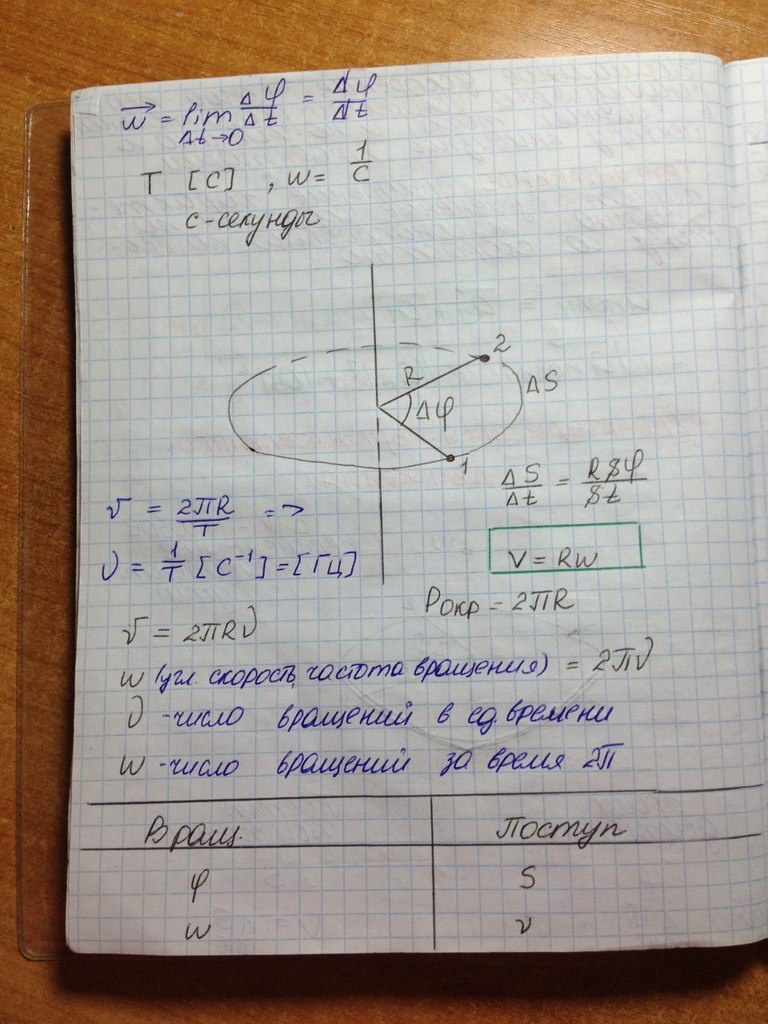 w⃗ = lim Δφ/Δt = Δφ/Δt
Δt→0
T [C] , w = 1/C
с-секунды
2
R
ΔS
Δφ
1
ΔS/Δt = RΔφ/Δt
v = 2πR/T =>
V = Rw
ν = 1/T [C⁻¹] = [Гц]
Pокр = 2πR
v = 2πRν
w (угл. скорость, частота вращения) = 2πν
ν -число вращений в ед. времени
w -число вращений за время 2π
Вращ. Поступ
φ S
w v